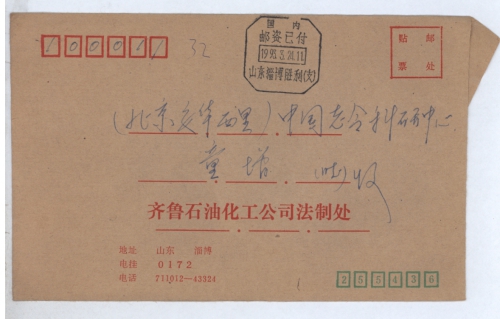 100011 32
国内
邮资已付
1993.3.31.11
山东淄博胜利(支)
贴 邮
票 处
(北京安华西里)中国老令科研中心
童增 收
齐鲁石油化工公司法制处
地址 山东 淄博
电挂 0172
电话 711012—43324
255436